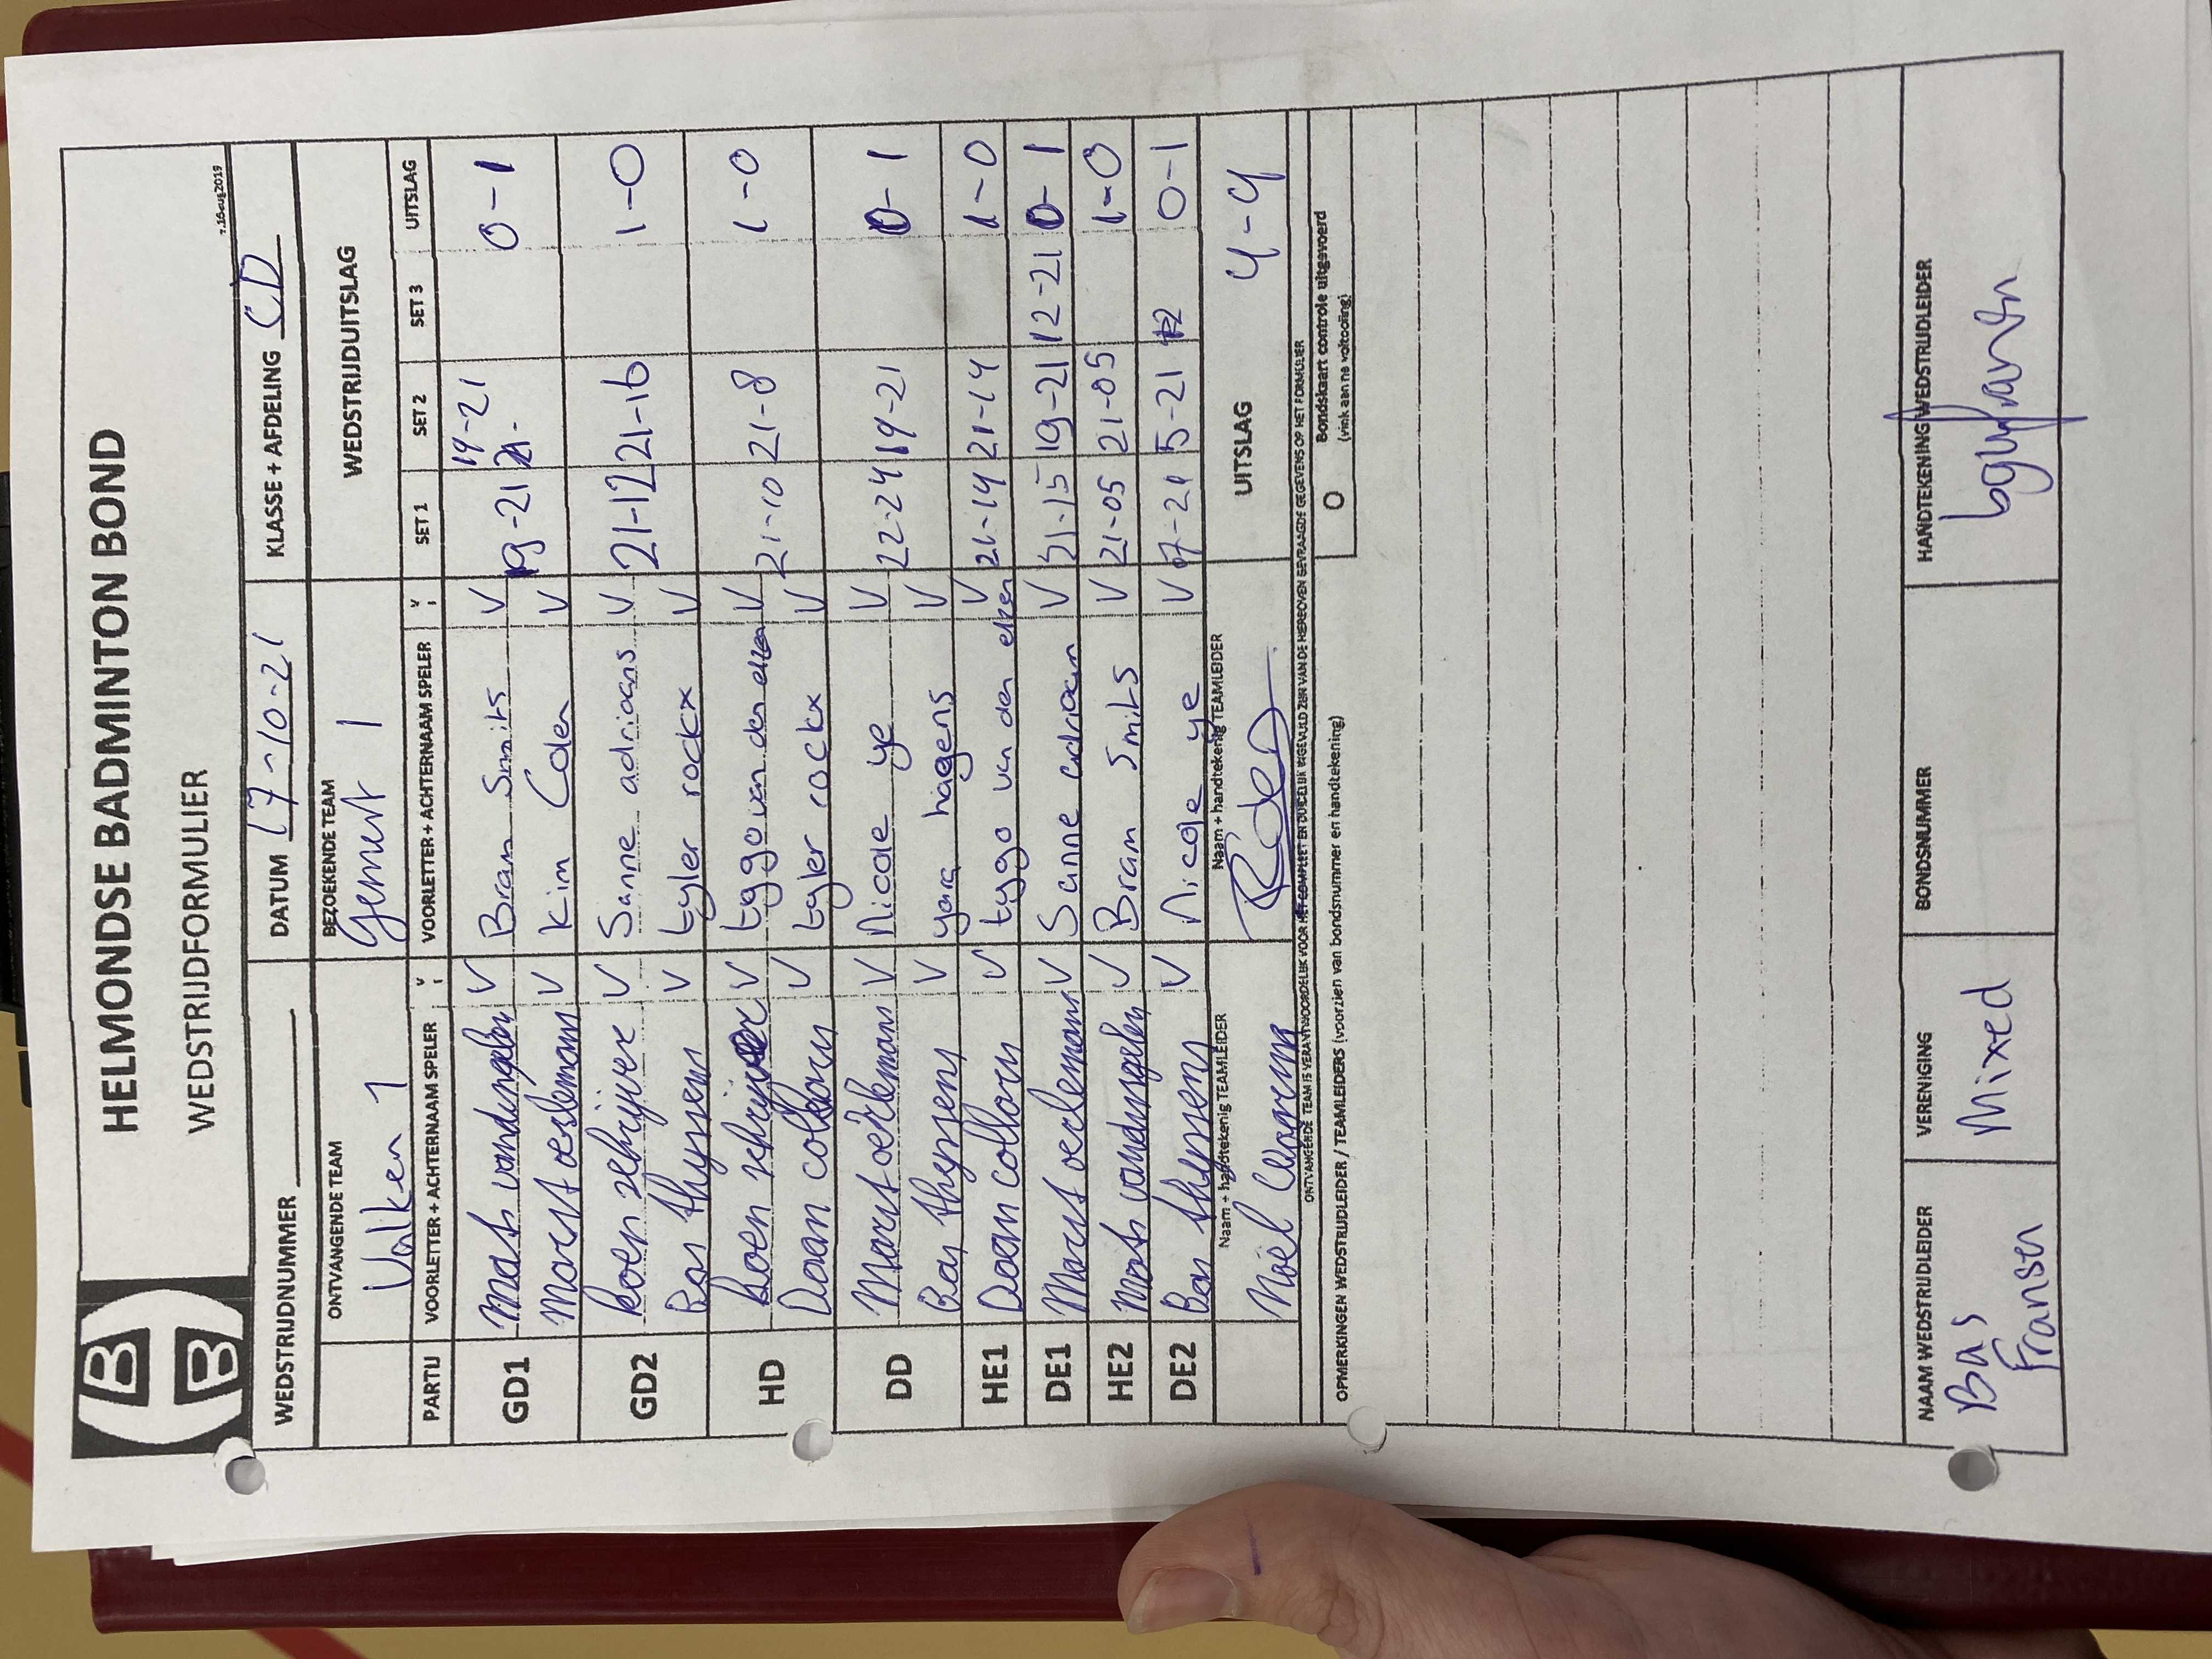 HELMONDSE BADMINTON BOND
WEDSTRIJDFORMULIER
v.16aug2019
WEDSTRIJDNUMMER DATUM 17-10-21 KLASSE + AFDELING CD
ONTVANGENDE TEAM BEZOEKENDE TEAM WEDSTRIJDUITSLAG
Valken 1 Gemert 1
PARTIJ VOORLETTER + ACHTERNAAM SPELER V VOORLETTER + ACHTERNAAM SPELER V SET 1 SET 2 SET 3 UITSLAG
GD1 Mats vandingelen V Bram Smits V 19-21 19-21 0-1
Marct oerlemans V Kim Coler V
GD2 Koen schrijver V Sanne adriaans V 21-12 21-16 1-0
Bas thijssen V tyler rockx V
HD Koen schrijver V tygo van den elsen V 21-10 21-8 1-0
Daan collaru V tyler rockx V
DD Marct oerlemans V Nicole ye V 22-24 19-21 0-1
Bas thijssen V yara hagens V
HE1 Daan collaru V tygo van den elsen V 21-14 21-14 1-0
DE1 Marct oerlemans V Sanne adriaan V 21-15 19-21 12-21 0-1
HE2 Mats vandingelen V Bram Smits V 21-05 21-05 1-0
DE2 Bas thijssen V Nicole ye V 07-21 5-21 0-1
Naam + handtekenig TEAMLEIDER Naam + handtekenig TEAMLEIDER UITSLAG 4-4
Noël
ONTVANGENDE TEAM IS VERANTWOORDELIJK VOOR HET COMPLEET EN DUIDELIJK INGEVULD ZIJN VAN DE HIERBOVEN GEVRAAGDE GEGEVENS OP HET FORMULIER
OPMERKINGEN WEDSTRIJDLEIDER / TEAMLEIDERS (voorzien van bondsnummer en handtekening) O Bondskaart controle uitgevoerd
(vink aan na voltooiing)
NAAM WEDSTRIJDLEIDER VERENIGING BONDSNUMMER HANDTEKENING WEDSTRIJDLEIDER
Bas Mixed
Fransen